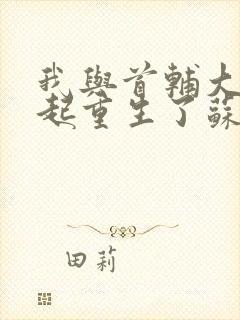 我與首輔大
起重生了蘇
田莉